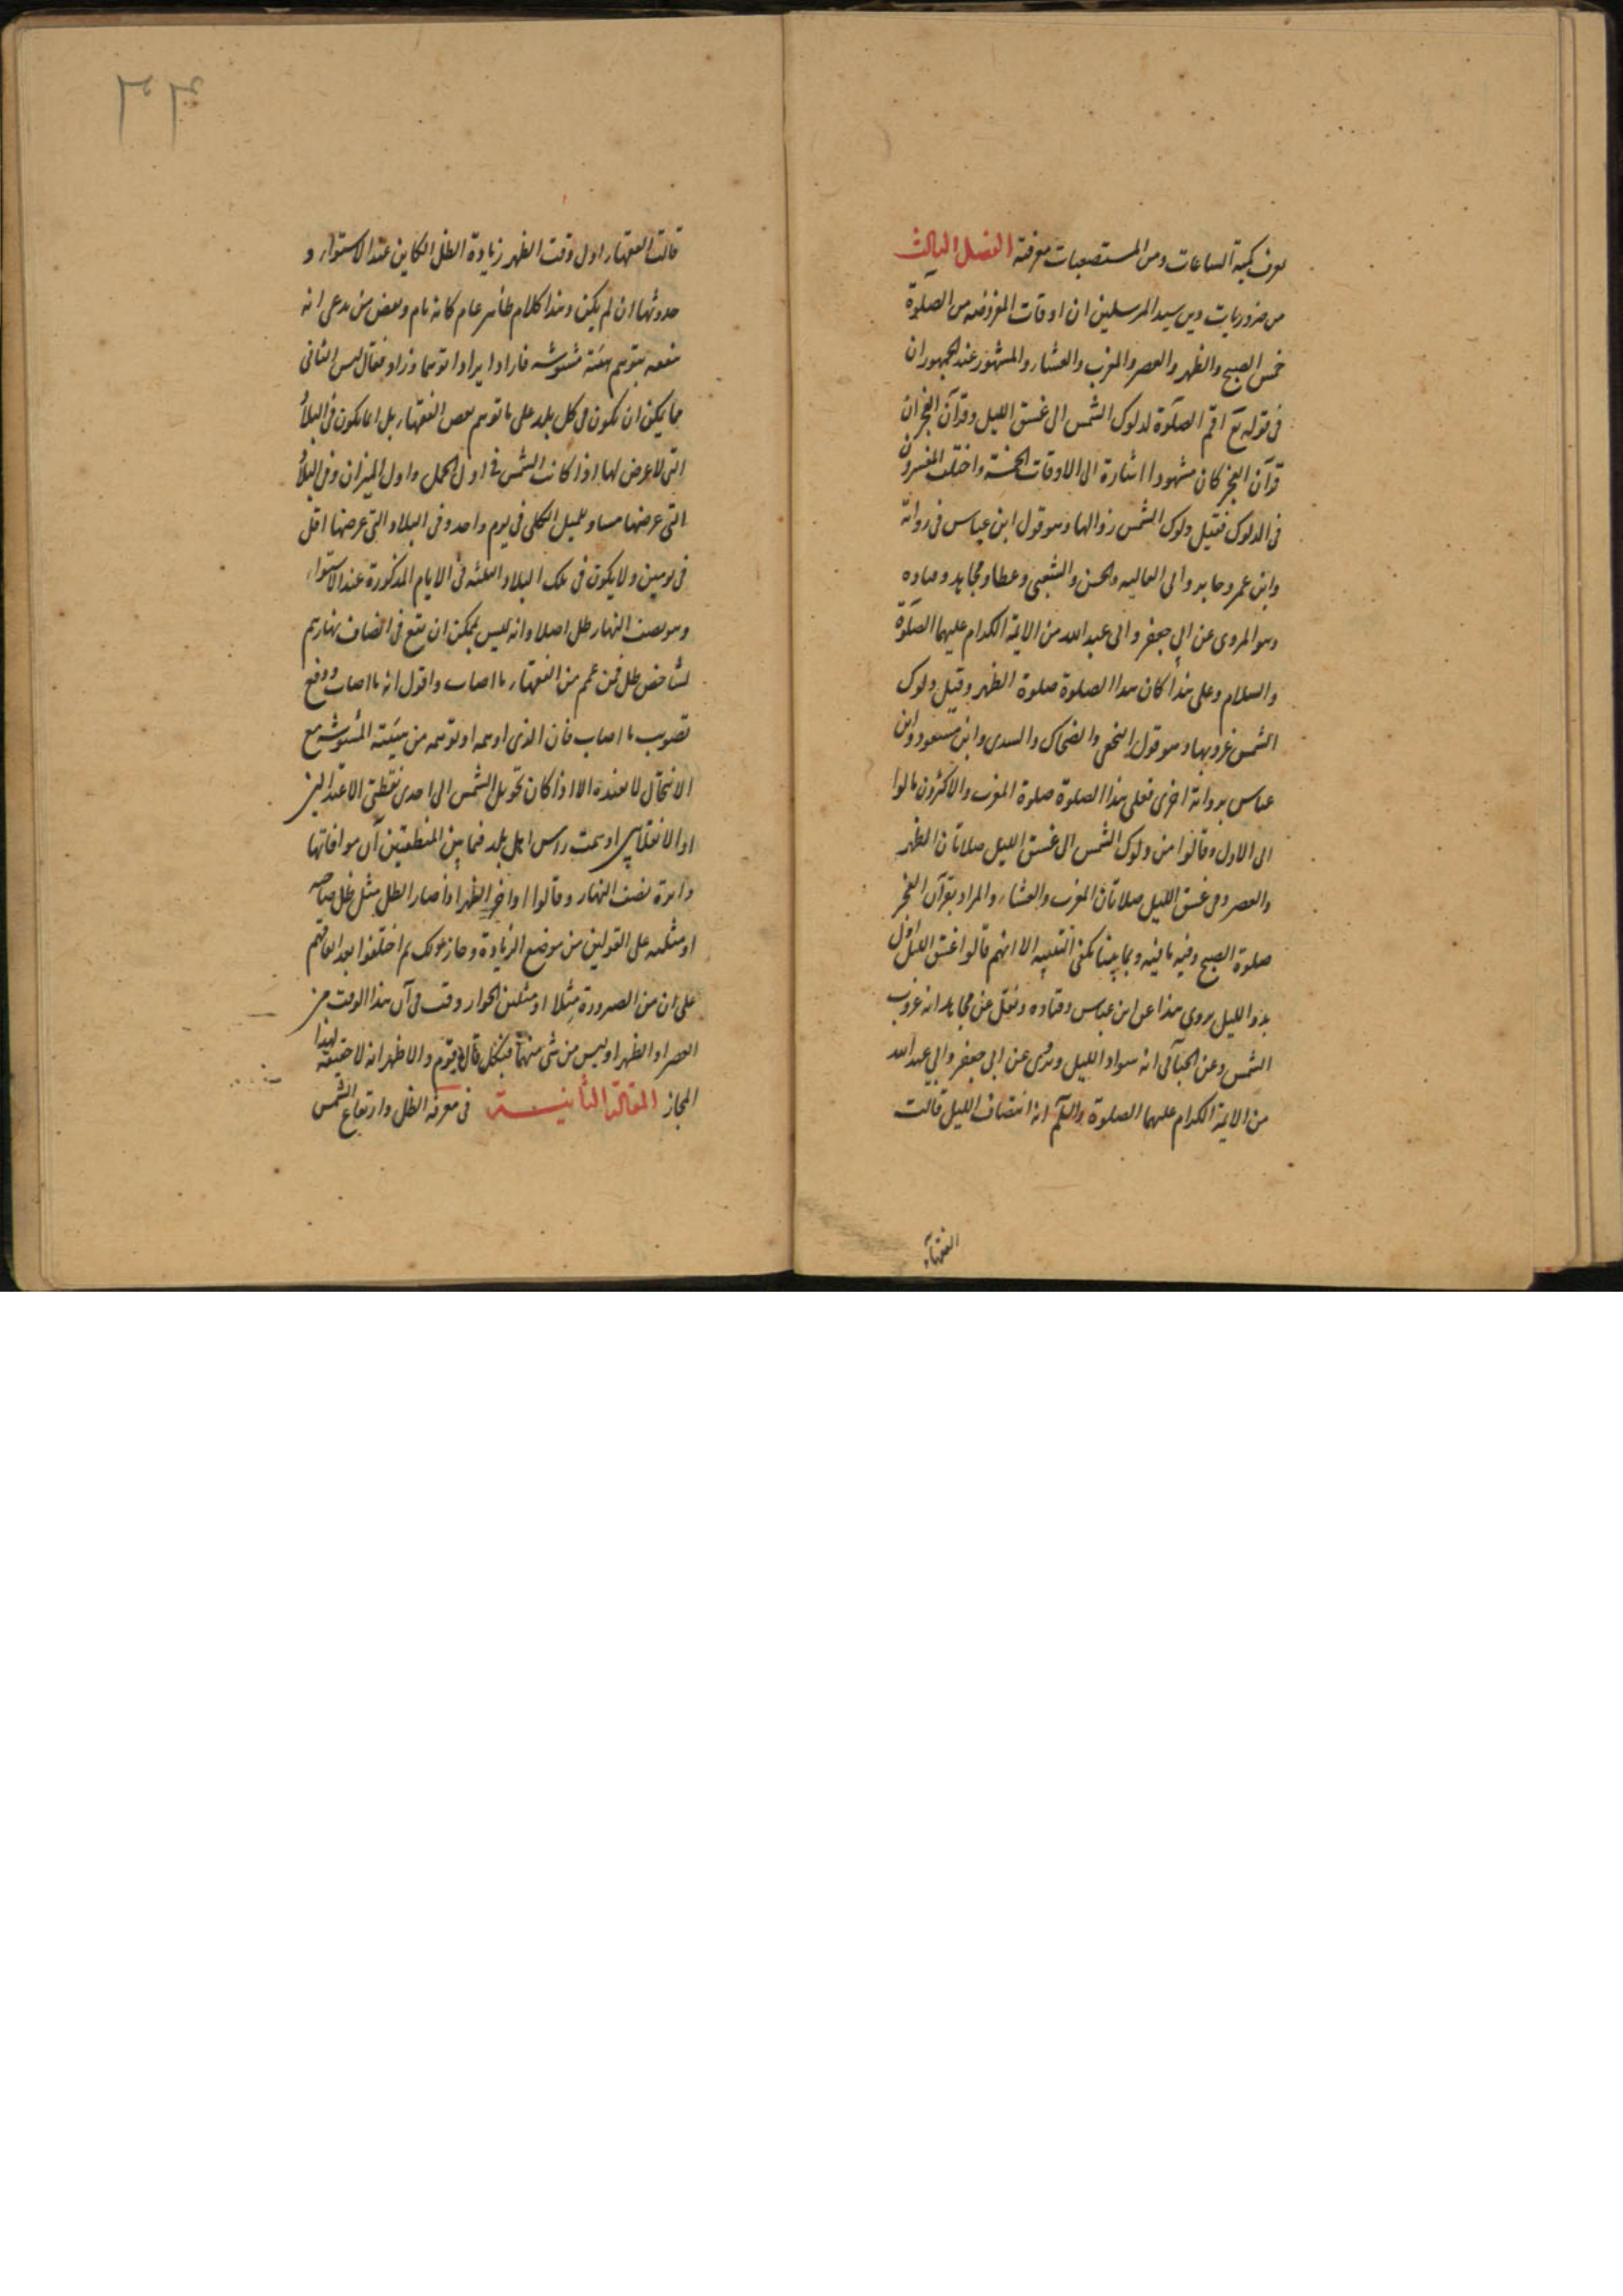 يعرف كمية الساعات ومن المستصعبات معرفته الفصل الثالث
من ضروريات دين سيد المرسلين ان اوقات المفروضه من الصلوة
خمس الصبح والظهر والعصر والمغرب والعشاء والمشهور عند الجمهور ان
فى قوله تع اقم الصلوة لدلوك الشمس الى غسق الليل وقرآن الفجر ان
قرآن الفجر كان مشهودا اشارة الى الاوقات الخمسة واختلف المفسرون
فى الدلوك فقيل دلوك الشمس زوالها وهو قول ابن عباس فى رواية
وابن عمر وجابر وابى العاليه والحسن والشعبى وعطا ومجاهد وقتاده
وهو المروى عن ابى جعفر وابى عبد الله من الايمة الكرام عليهما الصلوة
والسلام وعلى هذا كان هذا الصلوة صلوة الظهر وقيل دلوك
الشمس غروبها وهو قول النخعى والضحاك والسدى وابن مسعود وابن
عباس برواية اخرى فعلى هذا الصلوة صلوة المغرب والاكثرون مالوا
الى الاول وقالوا من دلوك الشمس الى غسق الليل صلاتان الظهر
والعصر وفى غسق الليل صلاتان المغرب والعشاء والمراد بقرآن الفجر
صلوة الصبح وفيه ما فيه وبما بينا يمكن التنبيه الا انهم قالوا غسق الليل اول
بدو الليل يروى هذا عن ابن عباس وقتاده ونقل عن مجاهد انه غروب
الشمس وعن الجبآئى انه سواد الليل وروى عن ابى جعفر وابى عبد الله
من الايمة الكرام عليهما الصلوة والسلم انه انتصاف الليل قالت
الفقهآء
قالت الفقهاء اول وقت الظهر زيادة الظل الكاين عند الاستواء و
حدوثها ان لم يكن وهذا كلام ظاهر عام كانه تام وبعض من يدعى انه
منعه بتوهم هيئة مشوشه فاراد ايرادا توهما وزاد فقال ليس الثانى
مما يمكن ان يكون فى كل بلد على ما توهم بعض الفقهاء بل انما يكون فى البلاد
التى لا عرض لها اذا كانت الشمس فى اول الحمل واول الميزان وفى البلاد
التى عرضها مساو للميل الكلى فى يوم واحد وفى البلاد التى عرضها اقل
فى يومين ولا يكون فى تلك البلاد الثلثه فى الايام المذكورة عند الاستواء
وهو نصف النهار ظل اصلا وانه ليس يمكن ان يقع فى انصاف نهاريهم
لشاخص ظل فمن عمم من الفقهاء ما اصاب واقول انه ما اصاب ووقع
تصويب ما اصاب فان الذى اوهمه او توهمه من هيئته المشوشه مع
الانتحال لا يفيده الا اذا كان تحويل الشمس الى احدى نقطتى الاعتدالين
او الانقلابين او سمت راس اهل بلد فيما بين المنطقتين آن موافاتها
دائرة نصف النهار وقالوا اواخر الظهر اذا صار الظل مثل ظل صاحبه
او مثليه على القولين من موضع الزيادة وجاز ذلك ثم اختلفوا بعد اتفاقهم
على ان من الصرورة مثلا او مثلين الجوار وقت فى آن هذا الوقت من
العصر او الظهر او ليس من شى منهما فبكل قال قوم والاظهر انه لا حقيقة لهذا
المجاز المقالة الثانيــــة فى معرفة الظل وارتفاع الشمس